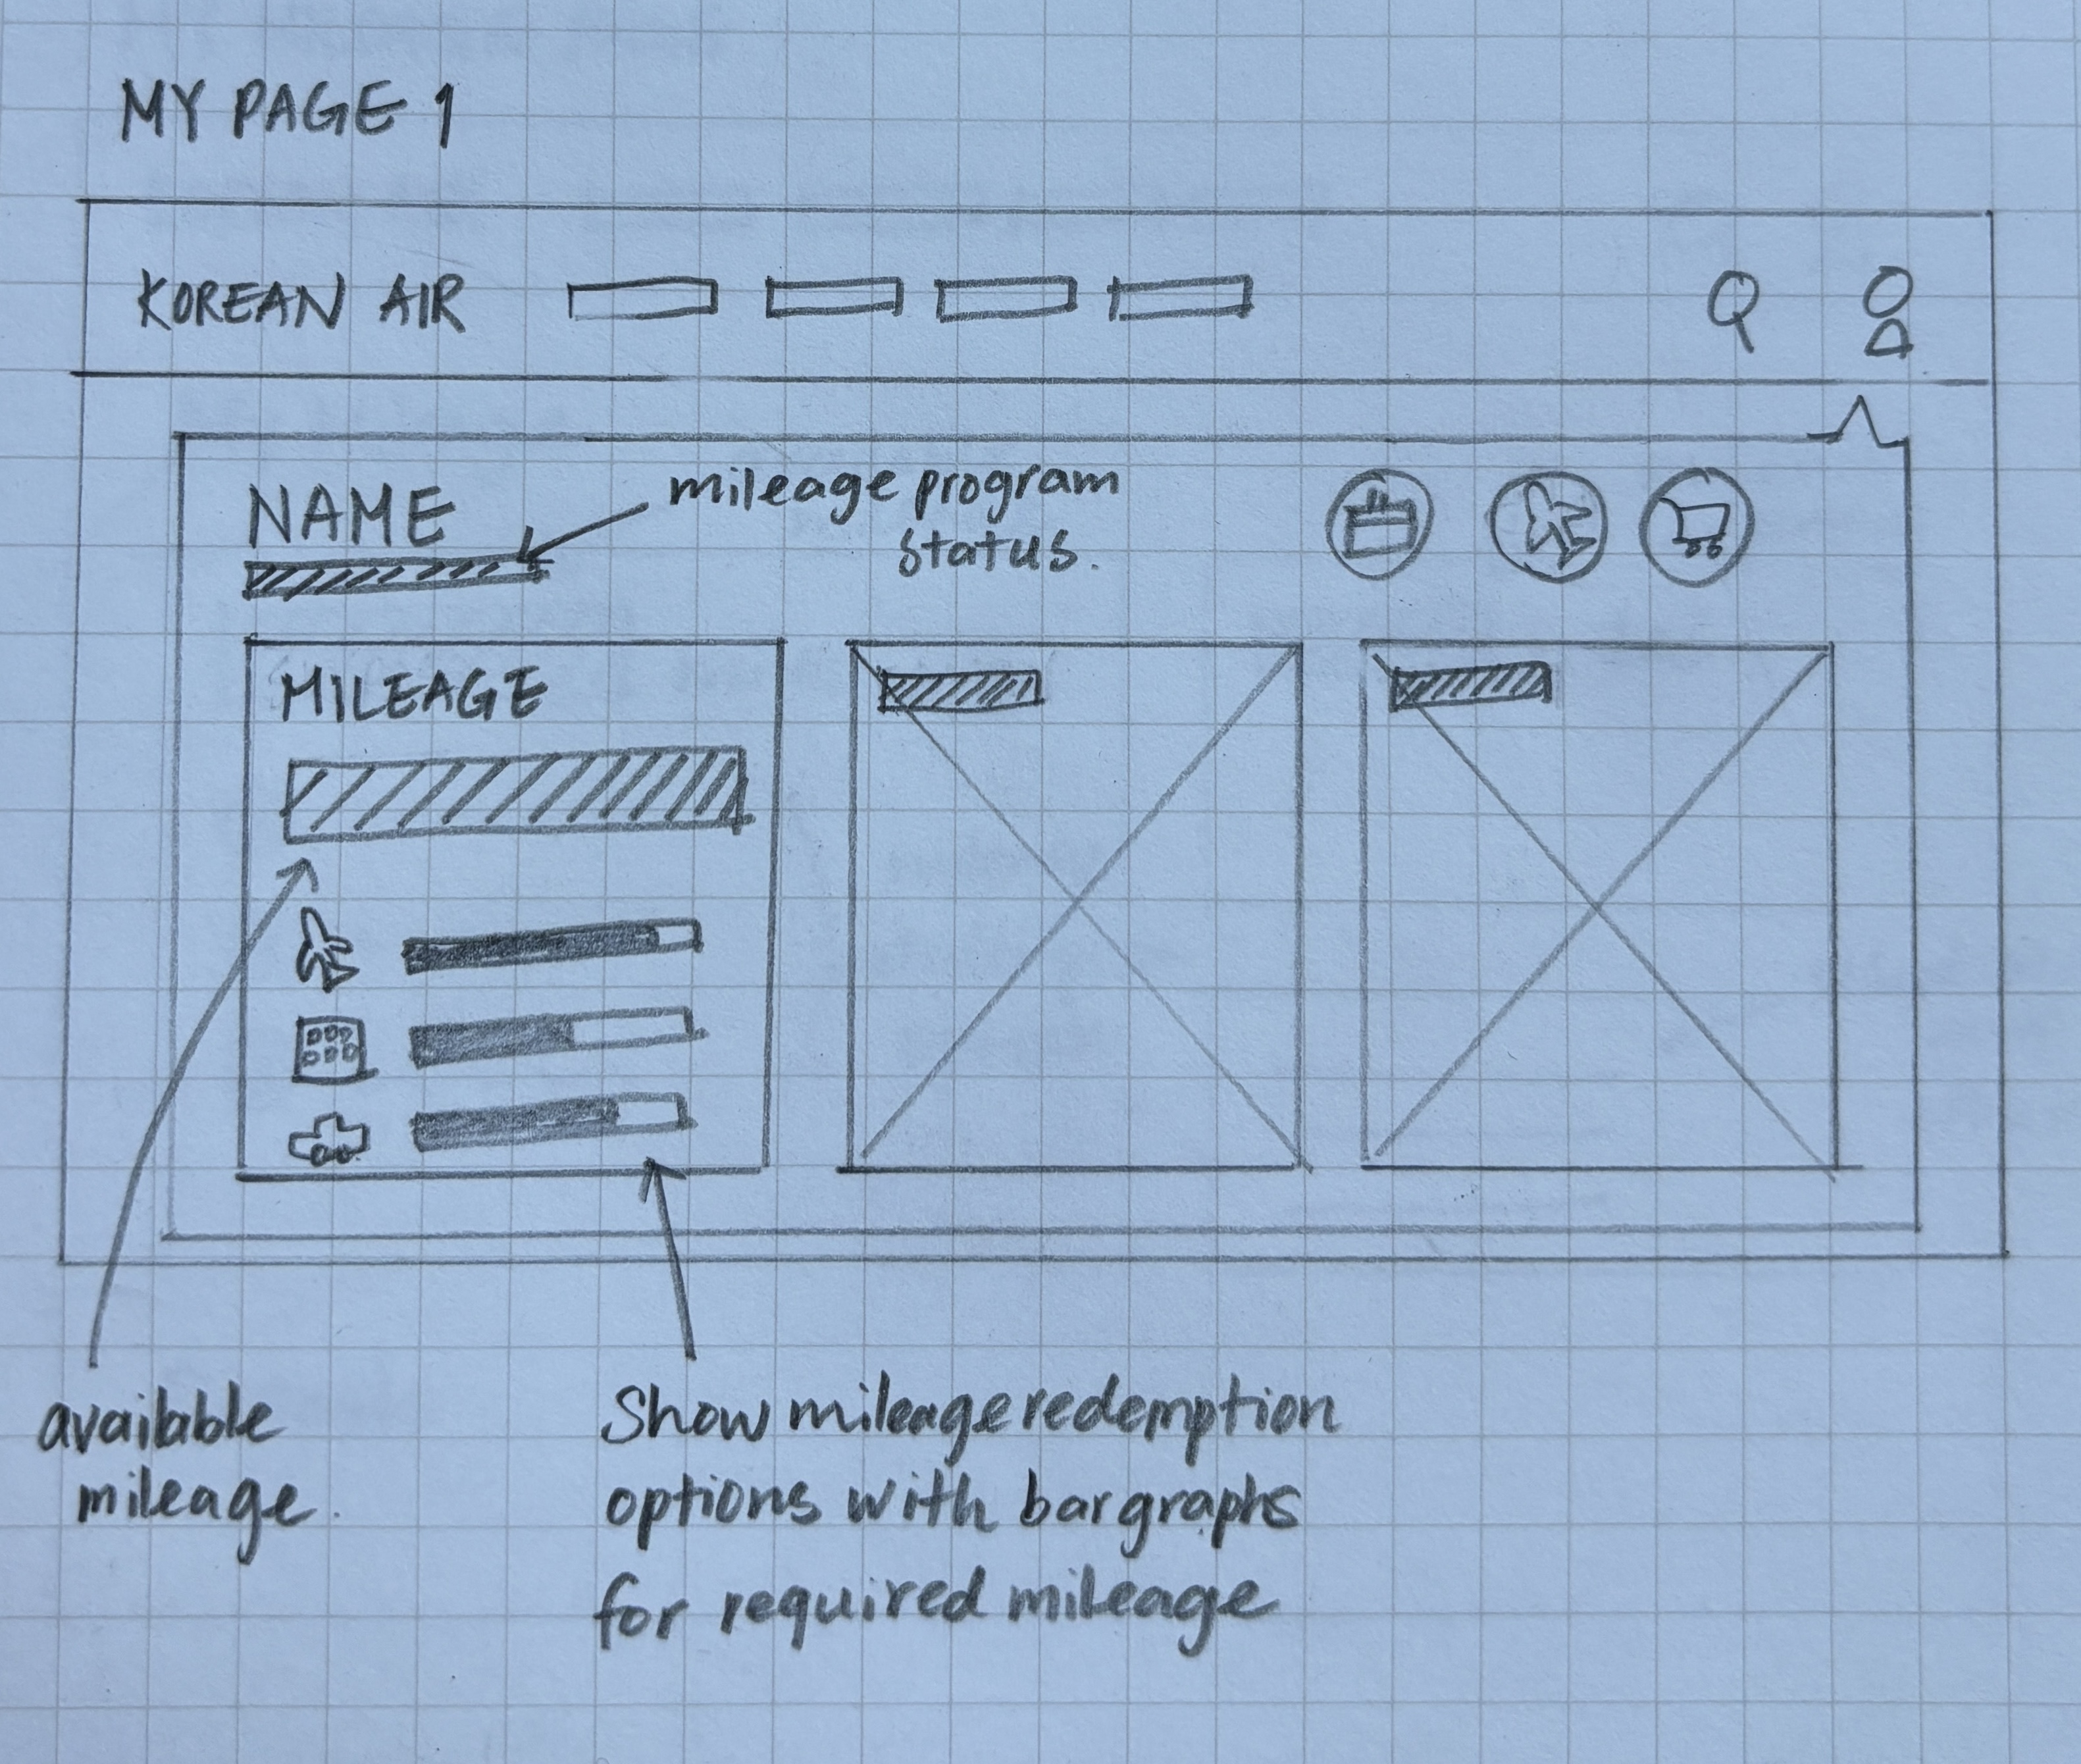 MY PAGE 1
KOREAN AIR
NAME
mileage program
status.
MILEAGE
available
mileage.
Show mileage redemption
options with bar graphs
for required mileage